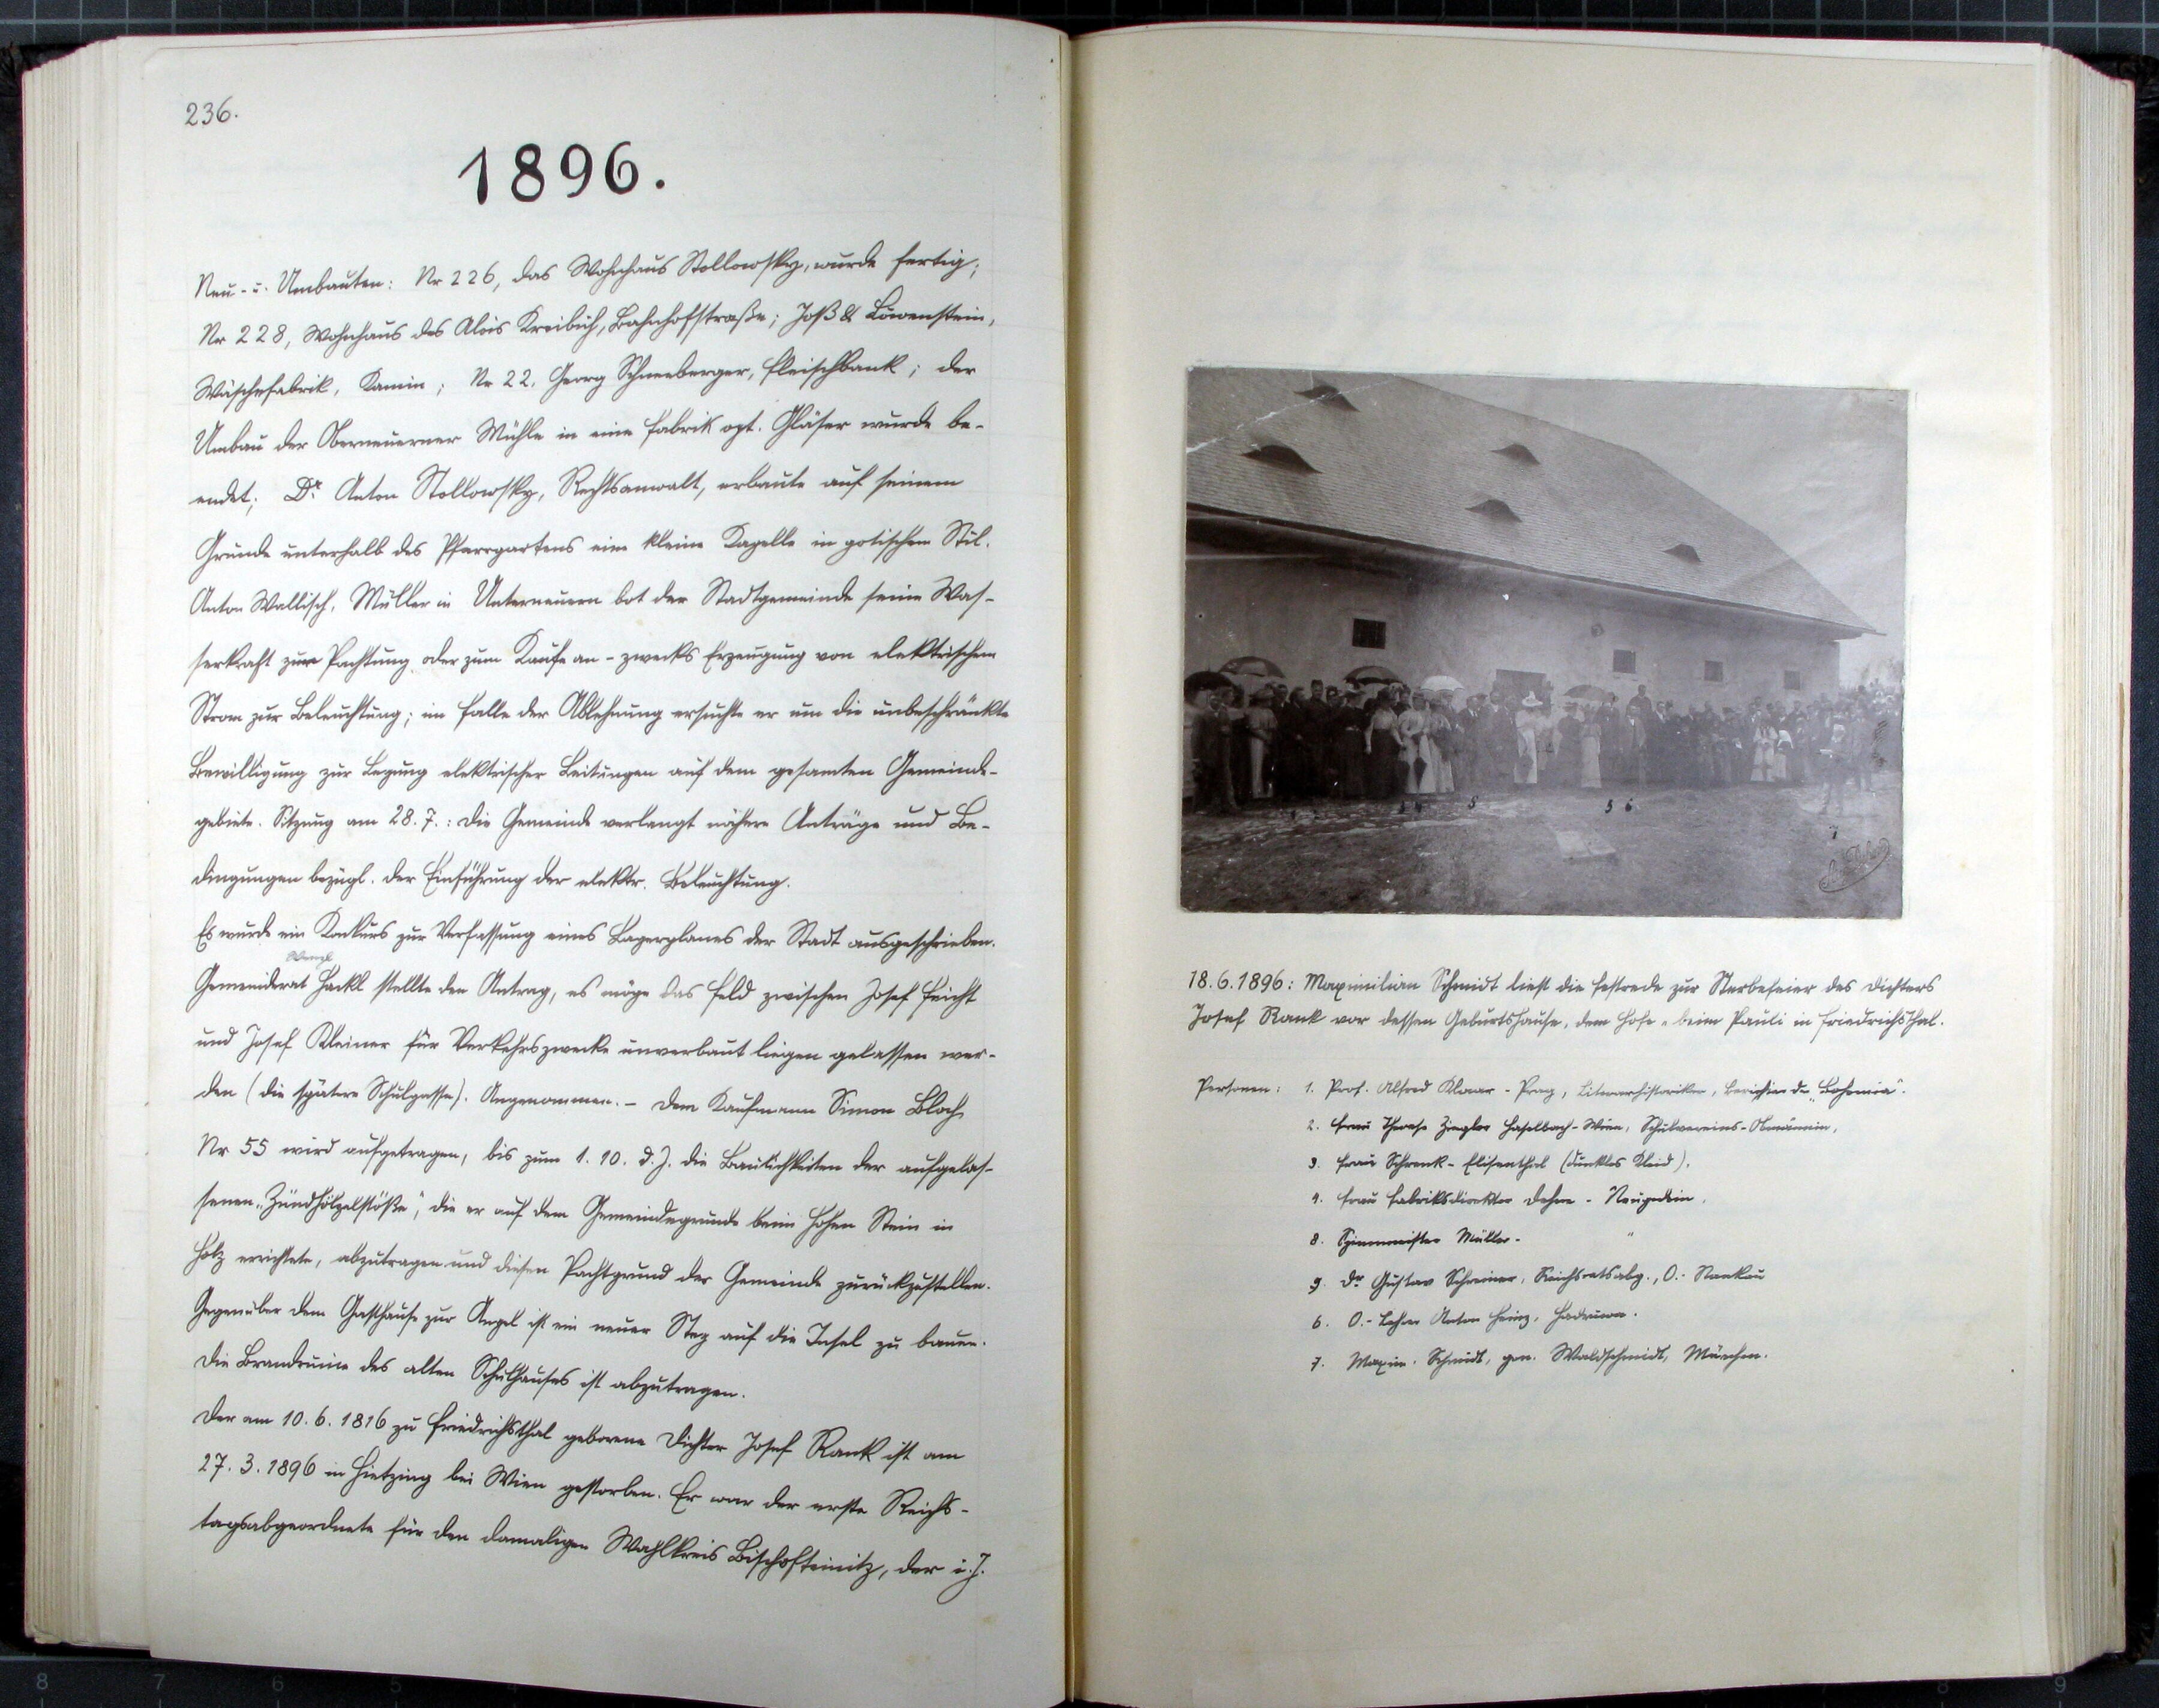 236.
1896.
Neu- u. Umbauten: Nr 226, das Wohnhaus Stollowsky, wurde fertig;
Nr 228, Wohnhaus des Alois Kreibich, Bahnhofstraße; Joß & Löwenstein,
Wäschefabrik, Kamin; Nr 22. Georg Schneeberger, Fleischbank; der
Umbau der Oberneuerner Mühle in eine Fabrik opt. Gläser wurde be-
endet; Dr. Anton Stollowsky, Rechtsanwalt, erbaute auf seinem
Grunde unterhalb des Pfarrgartens eine kleine Kapelle in gotischem Stil.
Anton Wallisch, Müller in Unterneuern bot der Stadtgemeinde seine Was-
serkraft zur Pachtung oder zum Kaufe an - zwecks Erzeugung von elektrischem
Strom zur Beleuchtung; im Falle der Ablehnung ersuchte er um die unbeschränkte
Bewilligung zur Legung elektrischer Leitungen auf dem gesamten Gemeinde-
gebiete. Sitzung am 28.7.: Die Gemeinde verlangt nähere Anträge und Be-
dingungen bezügl. der Einführung der elektr. Beleuchtung.
Es wurde ein Konkurs zur Verfassung eines Lagerplanes der Stadt ausgeschrieben.
Gemeinderat Hackl stellte den Antrag, es möge das Feld zwischen Josef Feicht
und Josef Kleiner für Verkehrszwecke unverbaut liegen gelassen wer-
den (die spätere Schulgasse). Angenommen. - Dem Kaufmann Simon Bloch
Nr 55 wird aufgetragen, bis zum 1. 10. d. J. die Baulichkeiten der aufgelas-
senen „Zündhölzelstöße", die er auf dem Gemeindegrunde beim Hohen Stein in
Holz errichtete, abzutragen und diesen Pachtgrund der Gemeinde zurückzustellen.
Gegenüber dem Gasthause zur Angel ist ein neuer Steg auf die Insel zu bauen.
Die Brandruine des alten Schulhauses ist abzutragen.
Der am 10. 6. 1816 zu Friedrichsthal geborene Dichter Josef Rank ist am
27. 3. 1896 in Hietzing bei Wien gestorben. Er war der erste Reichs-
tagsabgeordnete für den damaligen Wahlkreis Bischofteinitz, der i. J.
3 4 8 5 6
7
18. 6. 1896: Maximilian Schmidt liest die Festrede zur Sterbefeier des Dichters
Josef Rank vor dessen Geburtshause, dem Hofe „beim Pauli in Friedrichsthal.
Personen: 1. Prof. Alfred Klaar - Prag, Literarhistoriker, der „Bohemia".
2. Frau Therese Ziegler Haselbach-Wien, Schulvereins-Obmännin,
3. Frau Schrenk - Elisenthal (dunkles Kleid),
4. Frau Fabriksdirektor - Neugedein,
8. Spinnmeister Müller - "
9. Dr. Gustav Schreiner, Reichsratsabg., O.- Stankau
6. O.- Lehrer Anton Heinz, Hadruwa.
7. Maxim. Schmidt, gen. Waldschmidt, München.